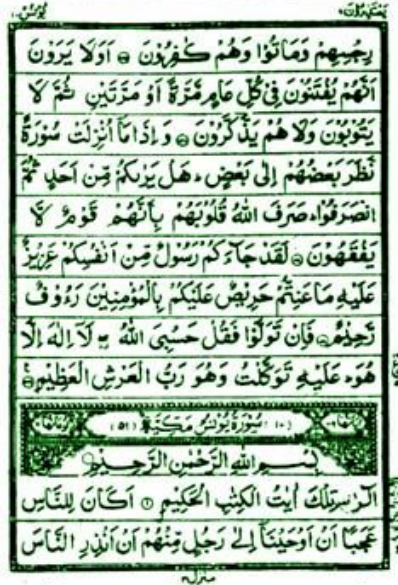 يعتذرون ۱۱ يونس ۱۰
رِجْسِهِمْ وَمَاتُوْا وَهُمْ كٰفِرُوْنَ ۝ اَوَلَا يَرَوْنَ
اَنَّهُمْ يُفْتَنُوْنَ فِيْ كُلِّ عَامٍ مَّرَّةً اَوْ مَرَّتَيْنِ ثُمَّ لَا
يَتُوْبُوْنَ وَلَا هُمْ يَذَّكَّرُوْنَ ۝ وَاِذَا مَآ اُنْزِلَتْ سُوْرَةٌ
نَّظَرَ بَعْضُهُمْ اِلٰى بَعْضٍ ؕ هَلْ يَرٰىكُمْ مِّنْ اَحَدٍ ثُمَّ
انْصَرَفُوْا ؕ صَرَفَ اللّٰهُ قُلُوْبَهُمْ بِاَنَّهُمْ قَوْمٌ لَّا
يَفْقَهُوْنَ ۝ لَقَدْ جَآءَكُمْ رَسُوْلٌ مِّنْ اَنْفُسِكُمْ عَزِيْزٌ
عَلَيْهِ مَا عَنِتُّمْ حَرِيْصٌ عَلَيْكُمْ بِالْمُؤْمِنِيْنَ رَءُوْفٌ
رَّحِيْمٌ ۝ فَاِنْ تَوَلَّوْا فَقُلْ حَسْبِيَ اللّٰهُ ۖ لَآ اِلٰهَ اِلَّا
هُوَ ؕ عَلَيْهِ تَوَكَّلْتُ وَهُوَ رَبُّ الْعَرْشِ الْعَظِيْمِ ۝
(۱۰) سُوْرَةُ يُوْنُسَ مَكِّيَّةٌ (۵۱)
بِسْمِ اللّٰهِ الرَّحْمٰنِ الرَّحِيْمِ
الٓرٰ ۚ تِلْكَ اٰيٰتُ الْكِتٰبِ الْحَكِيْمِ ۝ اَكَانَ لِلنَّاسِ
عَجَبًا اَنْ اَوْحَيْنَآ اِلٰى رَجُلٍ مِّنْهُمْ اَنْ اَنْذِرِ النَّاسَ
منزل ۳